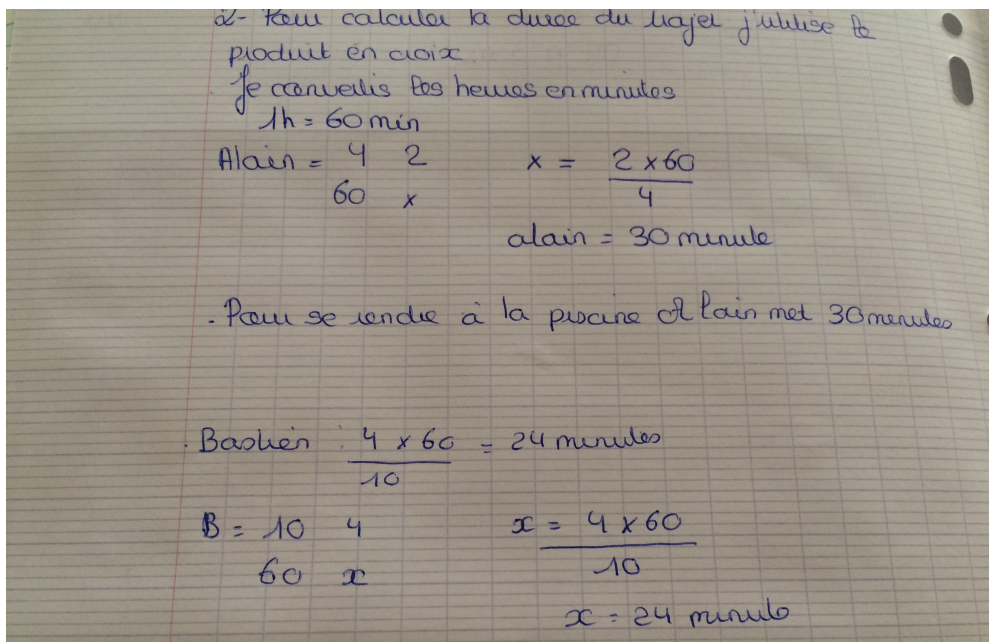 2- Pour calculer la duree du trajet j'utilise le
produit en croix
Je convertis les heures en minutes
1h = 60 min
Alain = 4 2 x = 2 x 60
60 x 4
alain = 30 minute
- Pour se rendre à la piscine Alain met 30 minutes
. Bastien : 4 x 60 = 24 minutes
10
B = 10 4 x = 4 x 60
60 x 10
x = 24 minute